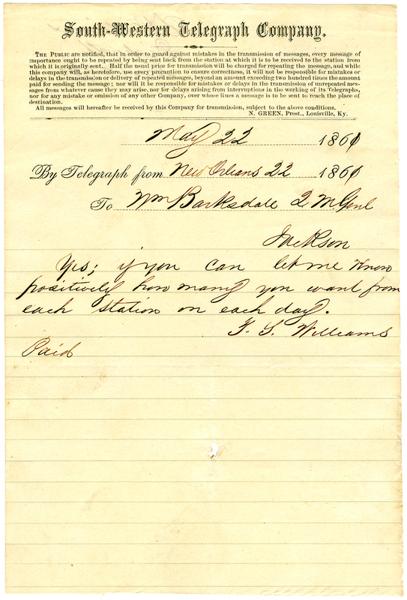 South-Western Telegraph Company.
THE PUBLIC are notified, that in order to guard against mistakes in the transmission of messages, every message of
importance ought to be repeated by being sent back from the station at which it is to be received to the station from
which it is originally sent. Half the usual price for transmission will be charged for repeating the message, and while
this company will, as heretofore, use every precaution to ensure correctness, it will not be responsible for mistakes or
delays in the transmission or delivery of repeated messages, beyond an amount exceeding two hundred times the amount
paid for sending the message; nor will it be responsible for mistakes or delays in the transmission of unrepeated mes-
sages from whatever cause they may arise, nor for delays arising from interruptions in the working of its Telegraphs,
nor for any mistake or omission of any other Company, over whose lines a message is to be sent to reach the place of
destination.
All messages will hereafter be received by this Company for transmission, subject to the above conditions.
N. GREEN, Prest., Louisville, Ky.
May 22 1861
By Telegraph from New Orleans 22 1861
To Wm Barksdale 2 M Genl
Jackson
Yes; if you can let me know
positively how many you want from
each station on each day.
F. S. Williams
Paid